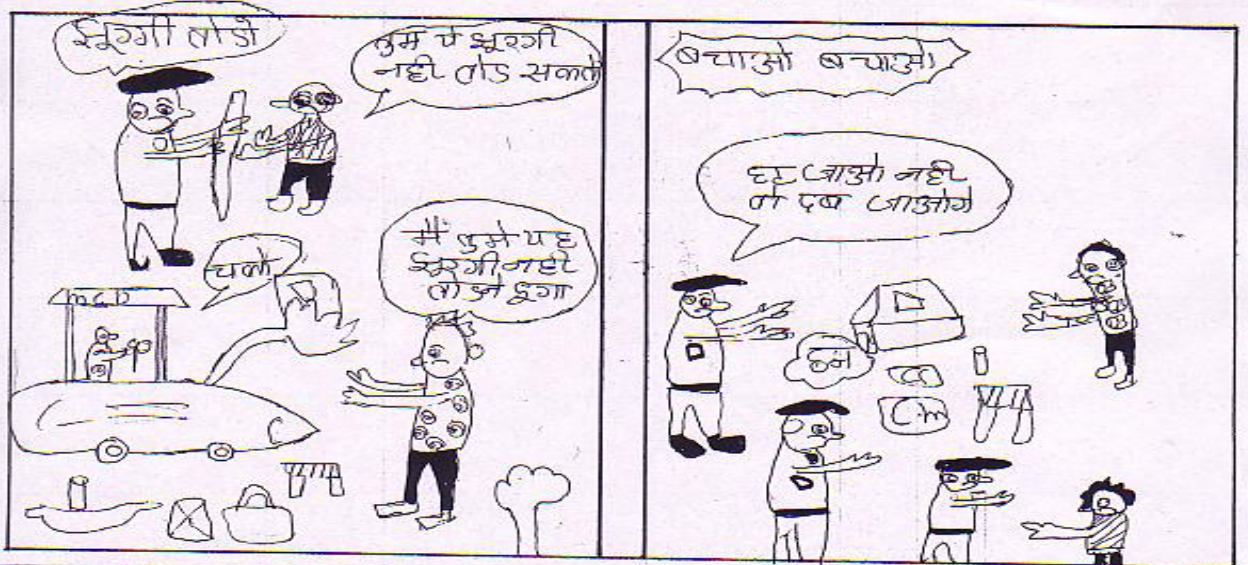 झुग्गी तोडो
तुम ये झुग्गी
नही तोड सकते
चलो
M.C.D
मैं तुमे यह
झुग्गी नही
तोडने दुगा
बचाओ बचाओ
हट जाओ नही
तो दब जाओगे